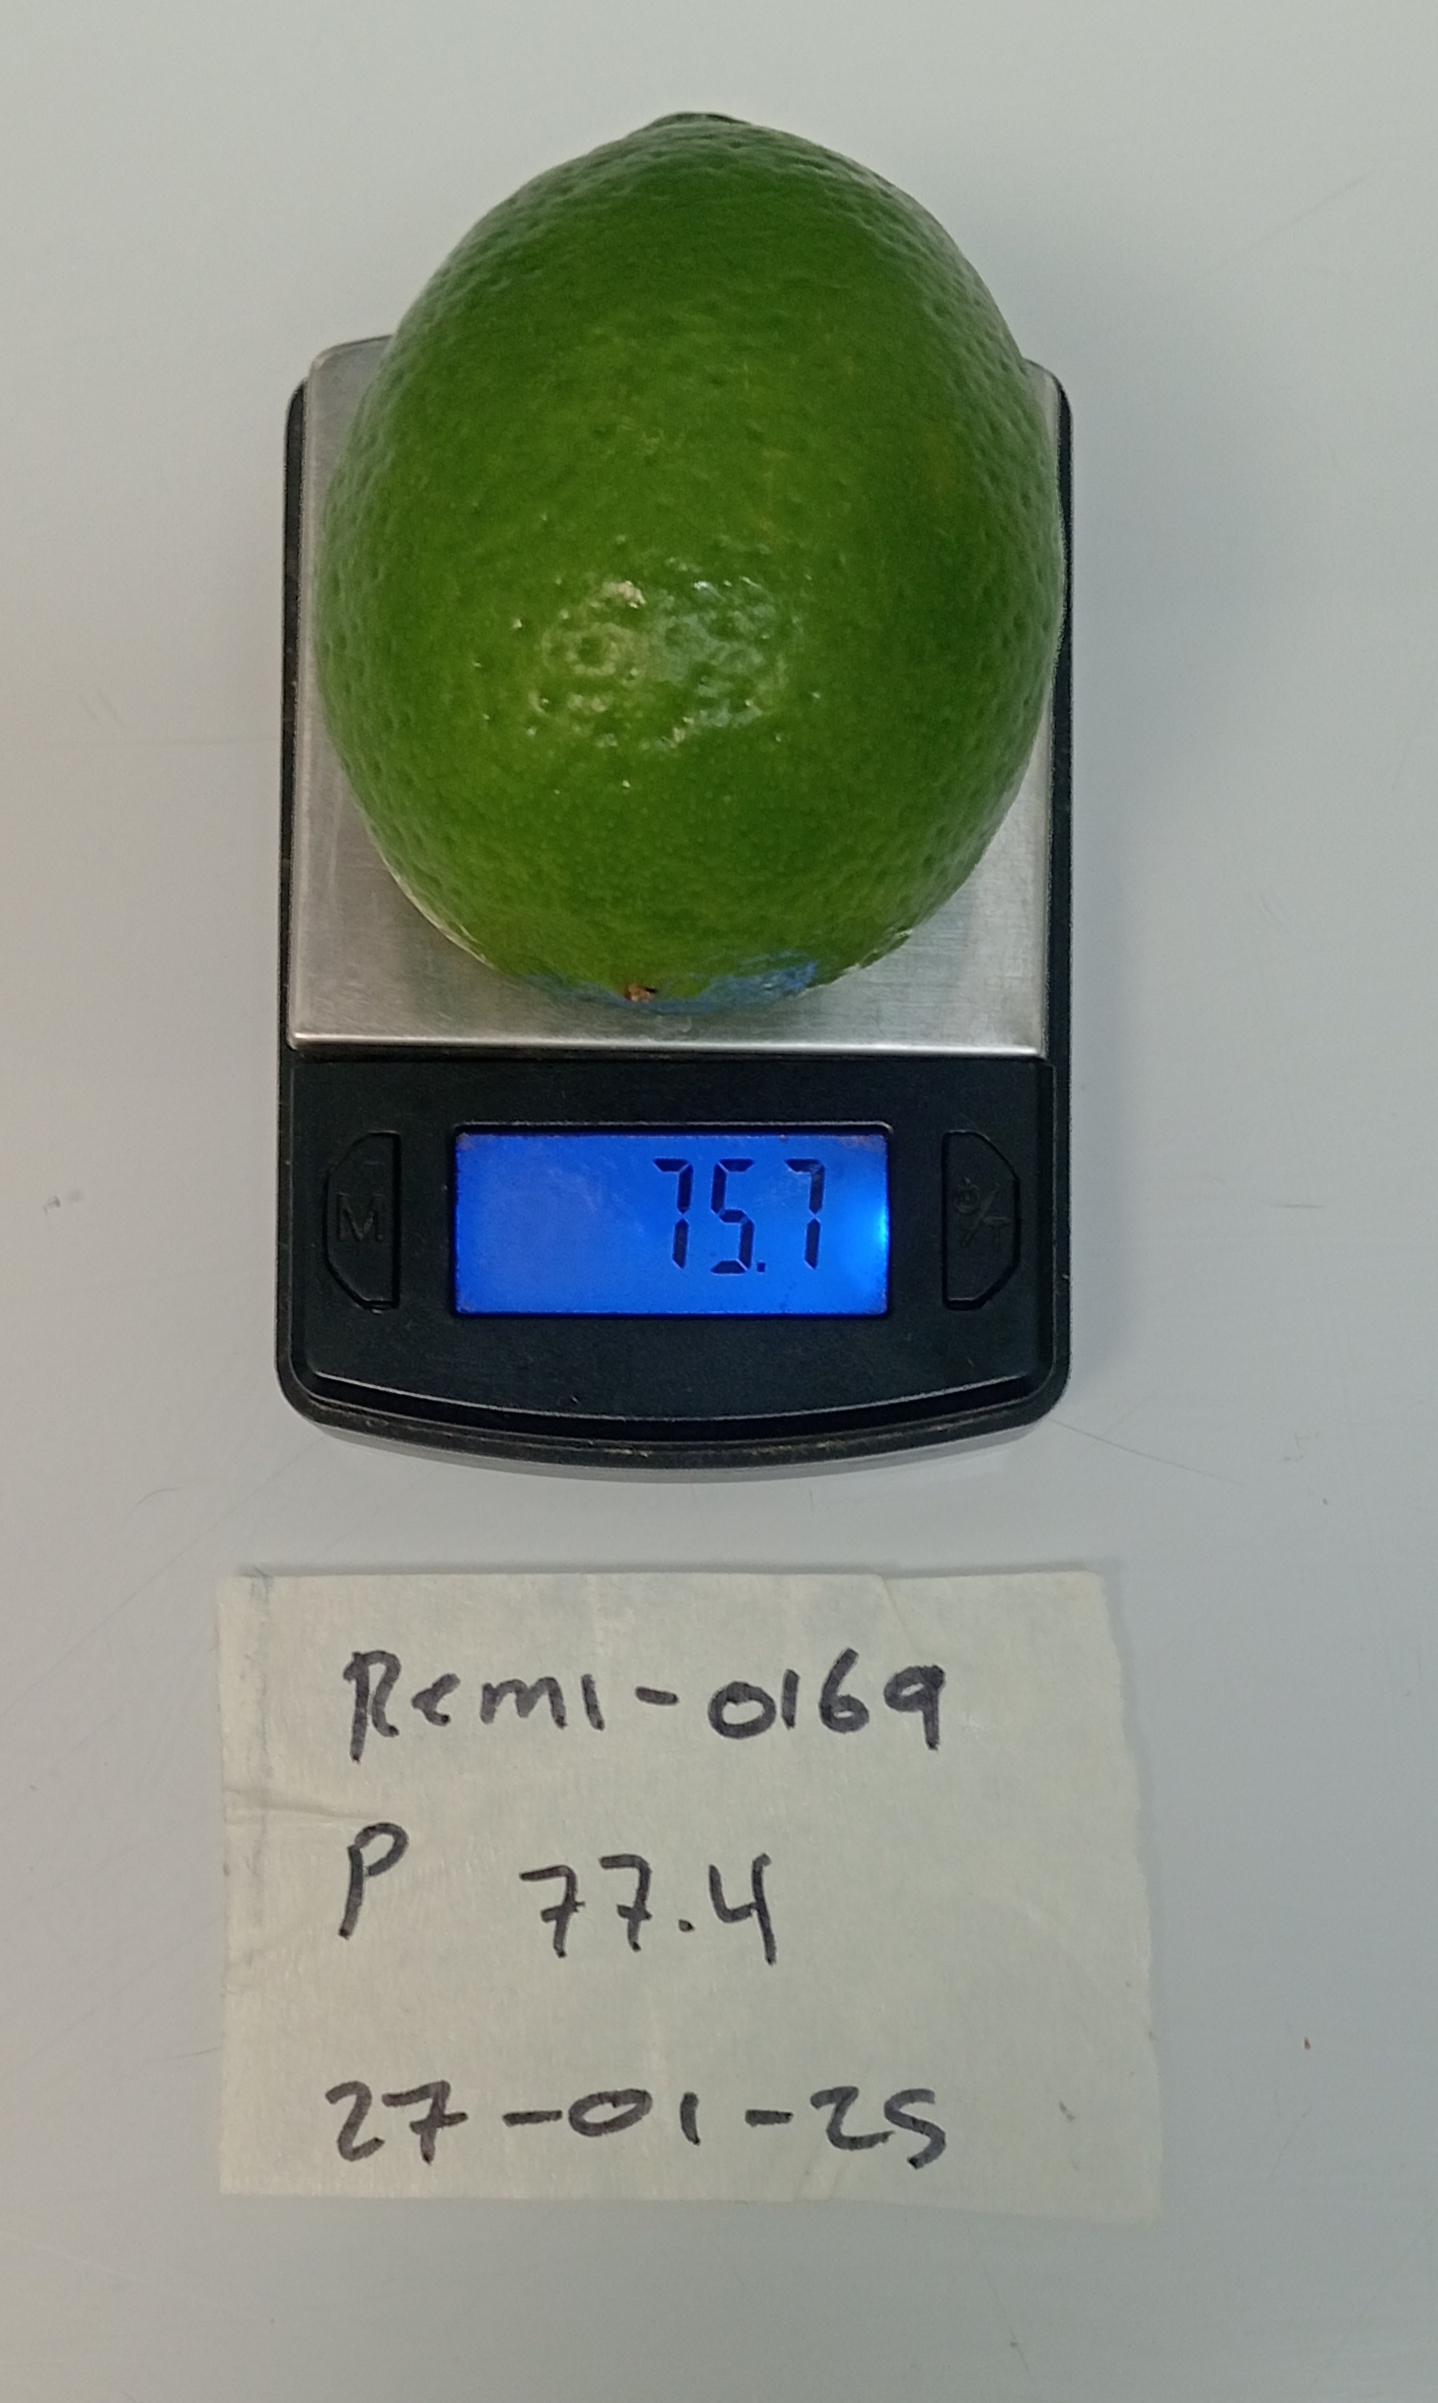 75.7
M
⏻/T
Remi-0169
P 77.4
27-01-25